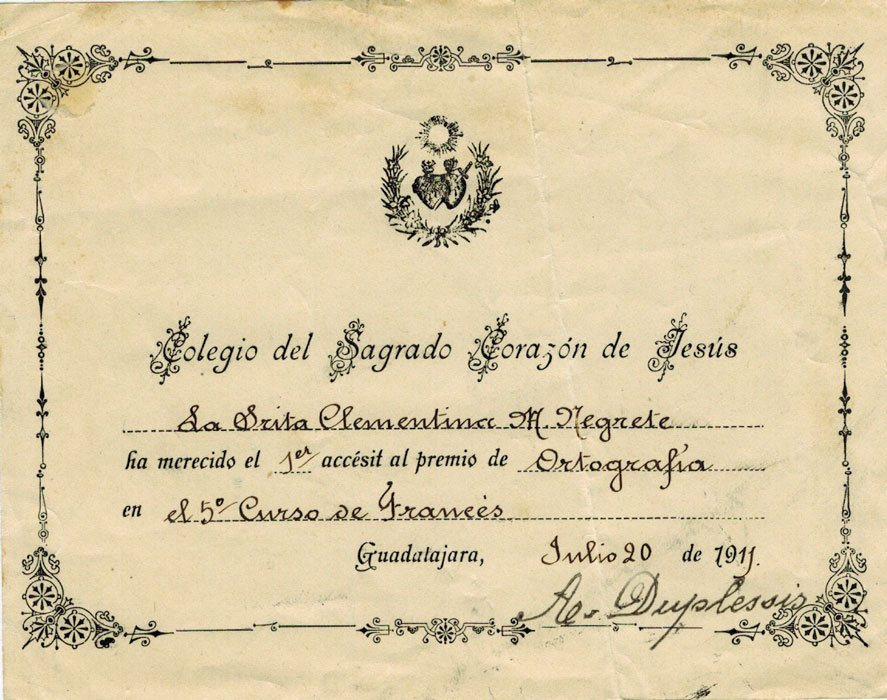 Colegio del Sagrado Corazón de Jesús
La Srita Clementina M. Negrete
ha merecido el 1er accésit al premio de Ortografía
en el 5º Curso de Francés
Guadalajara, Julio 20 de 1911.
A. Duplessis